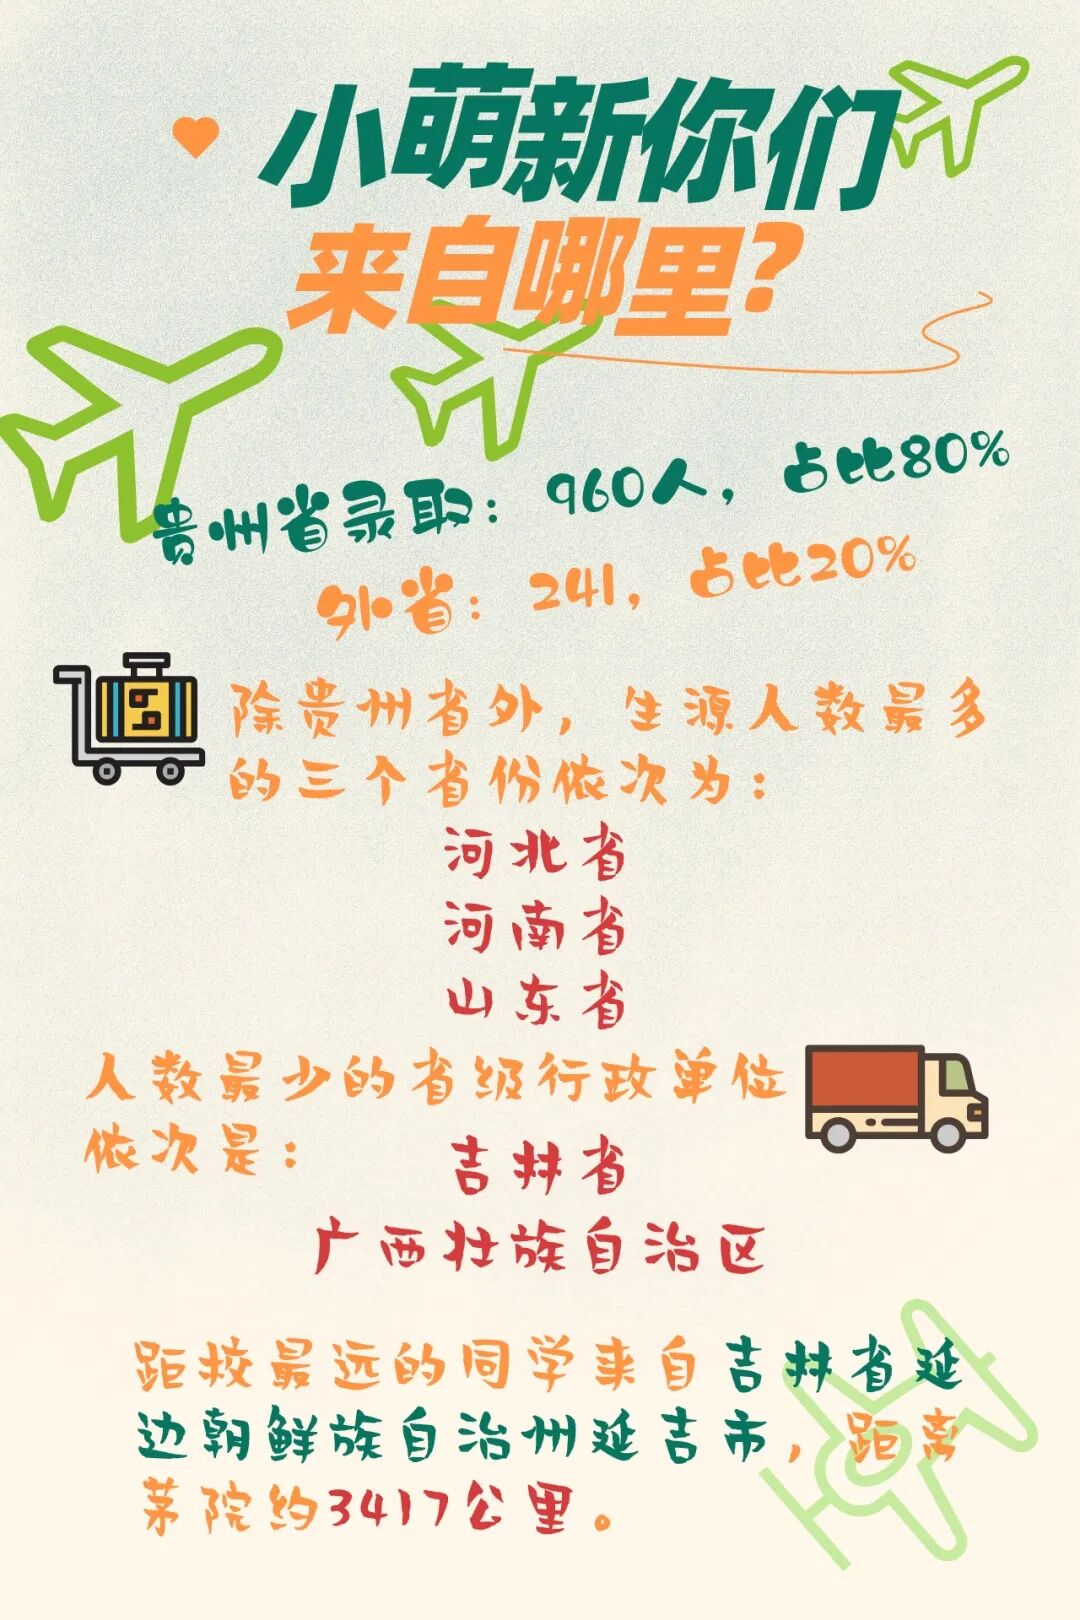 小萌新你们
来自哪里?
贵州省录取：960人，占比80%
外省：241，占比20%
除贵州省外，生源人数最多
的三个省份依次为：
河北省
河南省
山东省
人数最少的省级行政单位
依次是：
吉林省
广西壮族自治区
距校最远的同学来自吉林省延
边朝鲜族自治州延吉市，距离
茅院约3417公里。